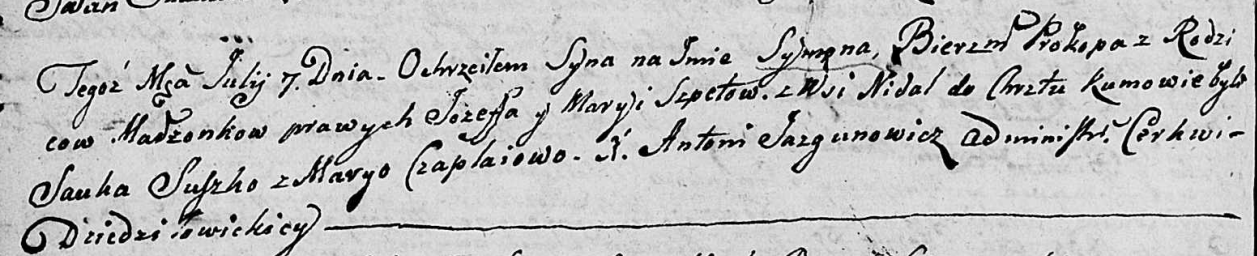 Tegoż Mca Julij 7. Dnia. Ochrzciłem Syna na Imie Symona, Bierzm Prokopa z Rodzi
cow Małżonkow prawych Jozeffa y Maryi Szpetow. z Wsi Nidal do Chrztu Kumowie byli
Sauka Suszko z Maryo Czaplaiowo. X. Antoni Jazgunowicz Administr. Cerkwi -
Dziedziłowickiey